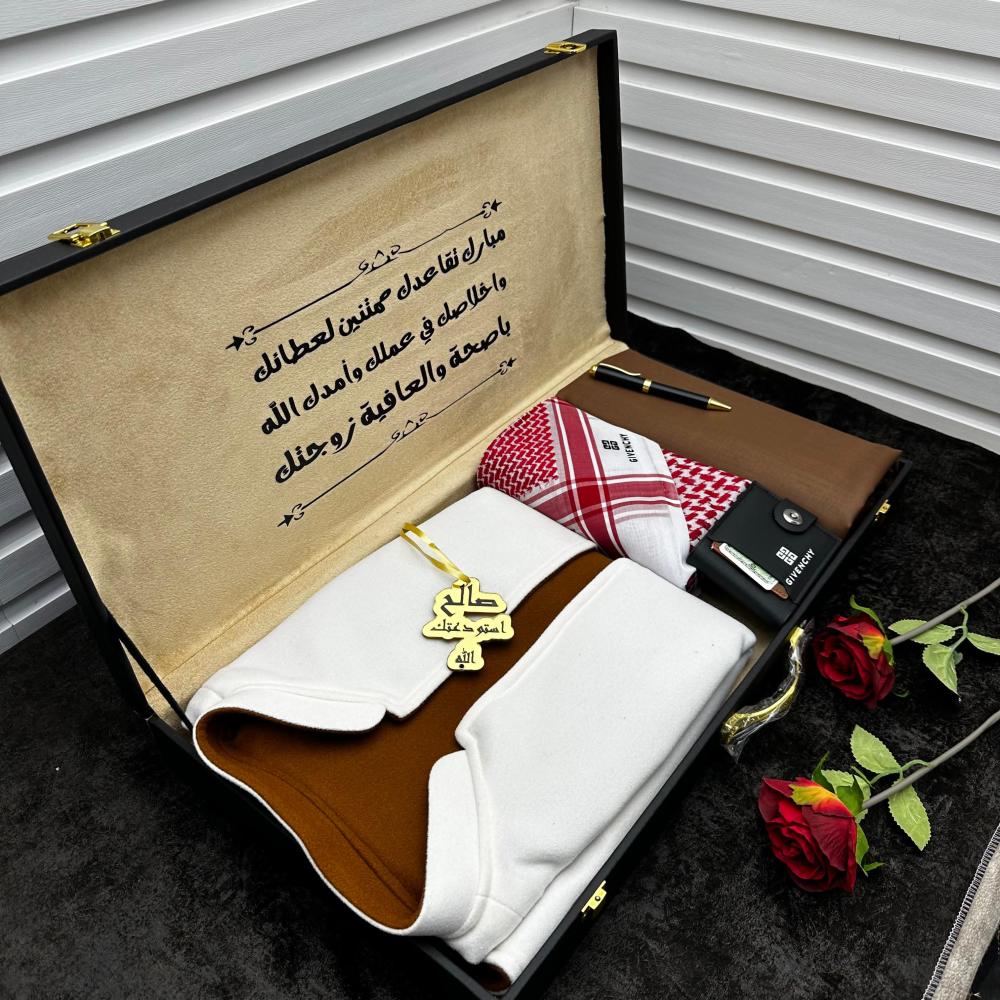 مبارك تقاعدك ممتنين لعطائك
واخلاصك في عملك وأمدك الله
باصحة والعافية زوجتك
GIVENCHY
GIVENCHY
صالح
استودعتك
الله